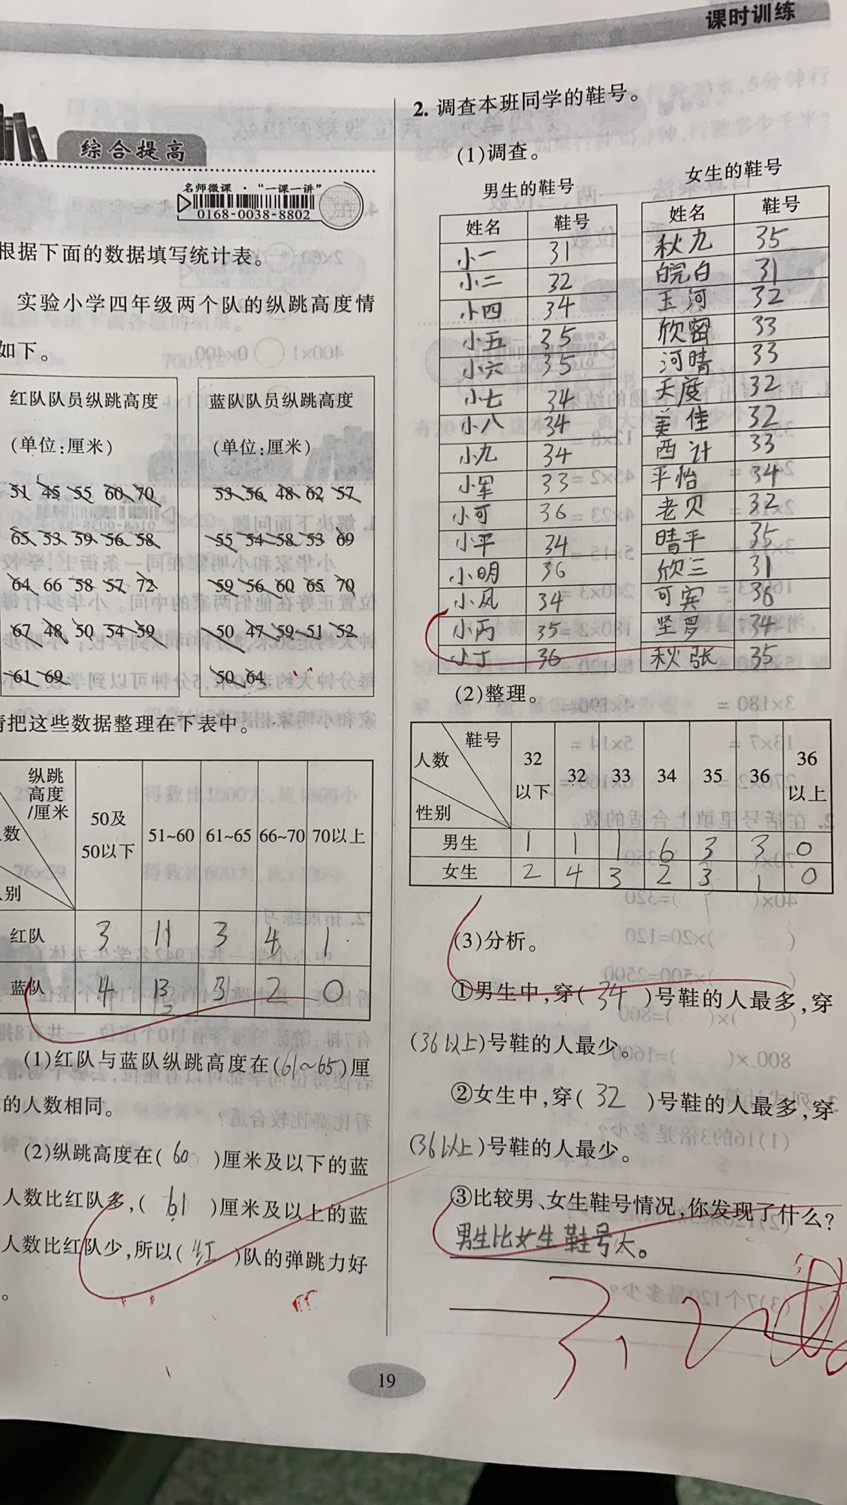 课时训练
综合提高
名师微课·“一课一讲”
0168-0038-8802
根据下面的数据填写统计表。
实验小学四年级两个队的纵跳高度情
如下。
红队队员纵跳高度
(单位:厘米)
51 45 55 60 70
65 53 59 56 58
64 66 58 57 72
67 48 50 54 59
61 69
蓝队队员纵跳高度
(单位:厘米)
53 56 48 62 57
55 54 58 53 69
59 56 60 65 70
50 47 59 51 52
50 64
请把这些数据整理在下表中。
纵跳高度/厘米 数 别 50及50以下 51~60 61~65 66~70 70以上
红队 3 11 3 4 1
蓝队 4 13 3 2 0
(1)红队与蓝队纵跳高度在(61~65)厘
的人数相同。
(2)纵跳高度在( 60 )厘米及以下的蓝
人数比红队多,( 61 )厘米及以上的蓝
人数比红队少,所以( 红 )队的弹跳力好
。
2. 调查本班同学的鞋号。
(1)调查。
男生的鞋号
姓名 鞋号
小一 31
小二 32
小四 34
小五 35
小六 35
小七 34
小八 34
小九 34
小军 33
小可 36
小平 34
小明 36
小风 34
小丙 35
小丁 36
女生的鞋号
姓名 鞋号
秋九 35
皖白 31
玉河 32
欣密 33
河晴 33
天度 32
美佳 32
西计 33
平怡 34
老贝 32
晴平 35
欣三 31
可宾 36
坚罗 34
秋张 35
(2)整理。
鞋号 人数 性别 32以下 32 33 34 35 36 36以上
男生 1 1 1 6 3 3 0
女生 2 4 3 2 3 1 0
(3)分析。
①男生中,穿( 34 )号鞋的人最多,穿
(36以上)号鞋的人最少。
②女生中,穿( 32 )号鞋的人最多,穿
(36以上)号鞋的人最少。
③比较男、女生鞋号情况,你发现了什么?
男生比女生鞋号大。
19